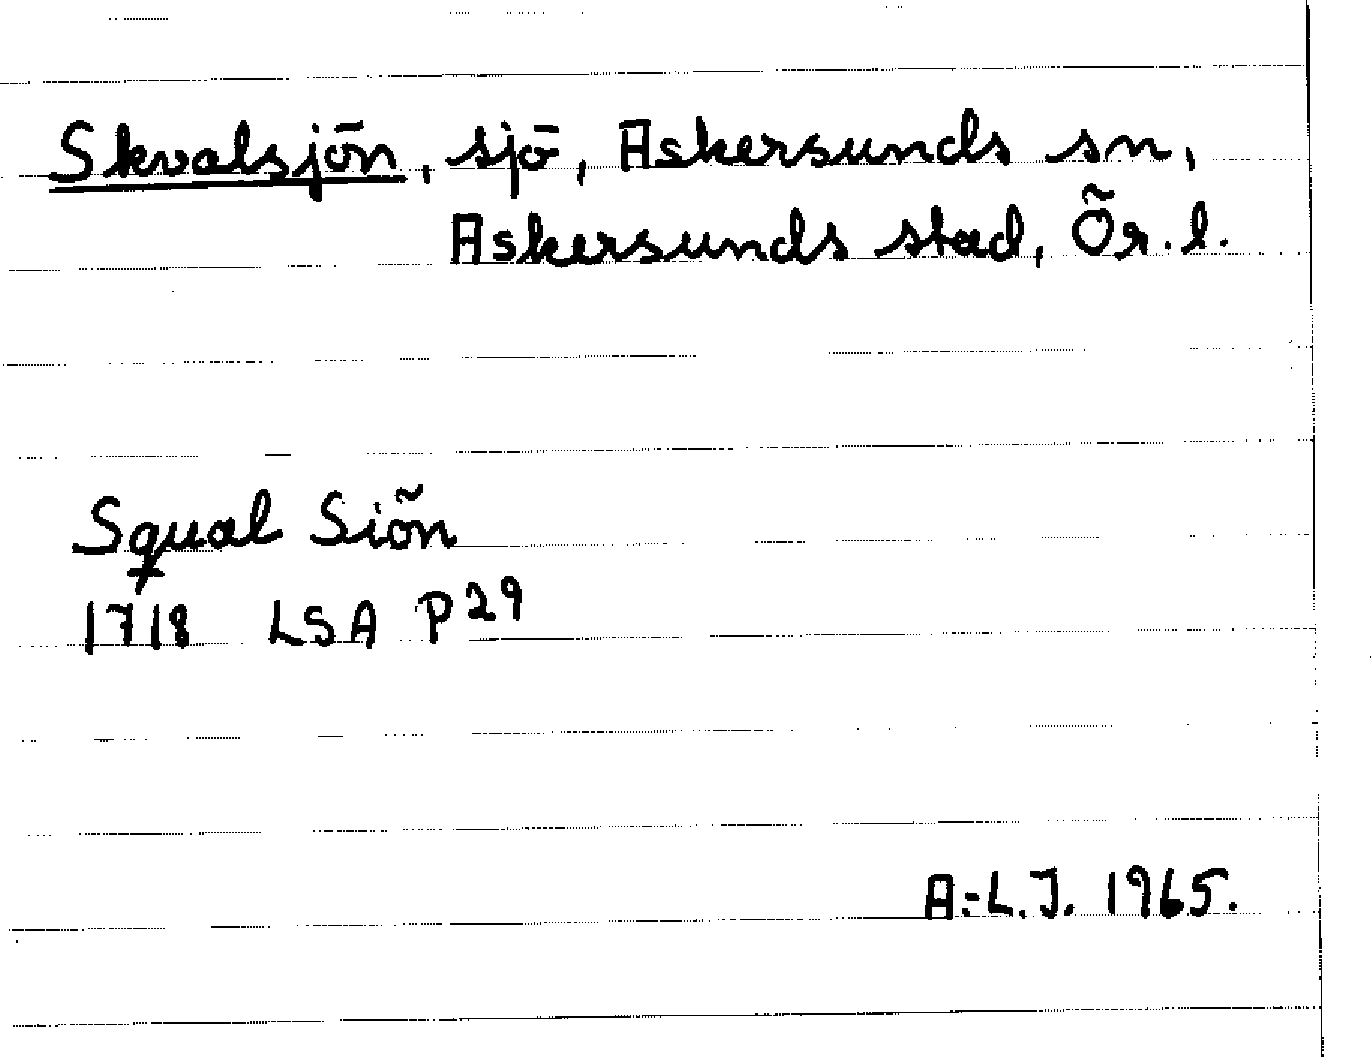 Skvalsjön, sjö, Askersunds sn,
Askersunds stad, Ör. l.
Squal Siön
1718 LSA P29
A.-L.J. 1965.